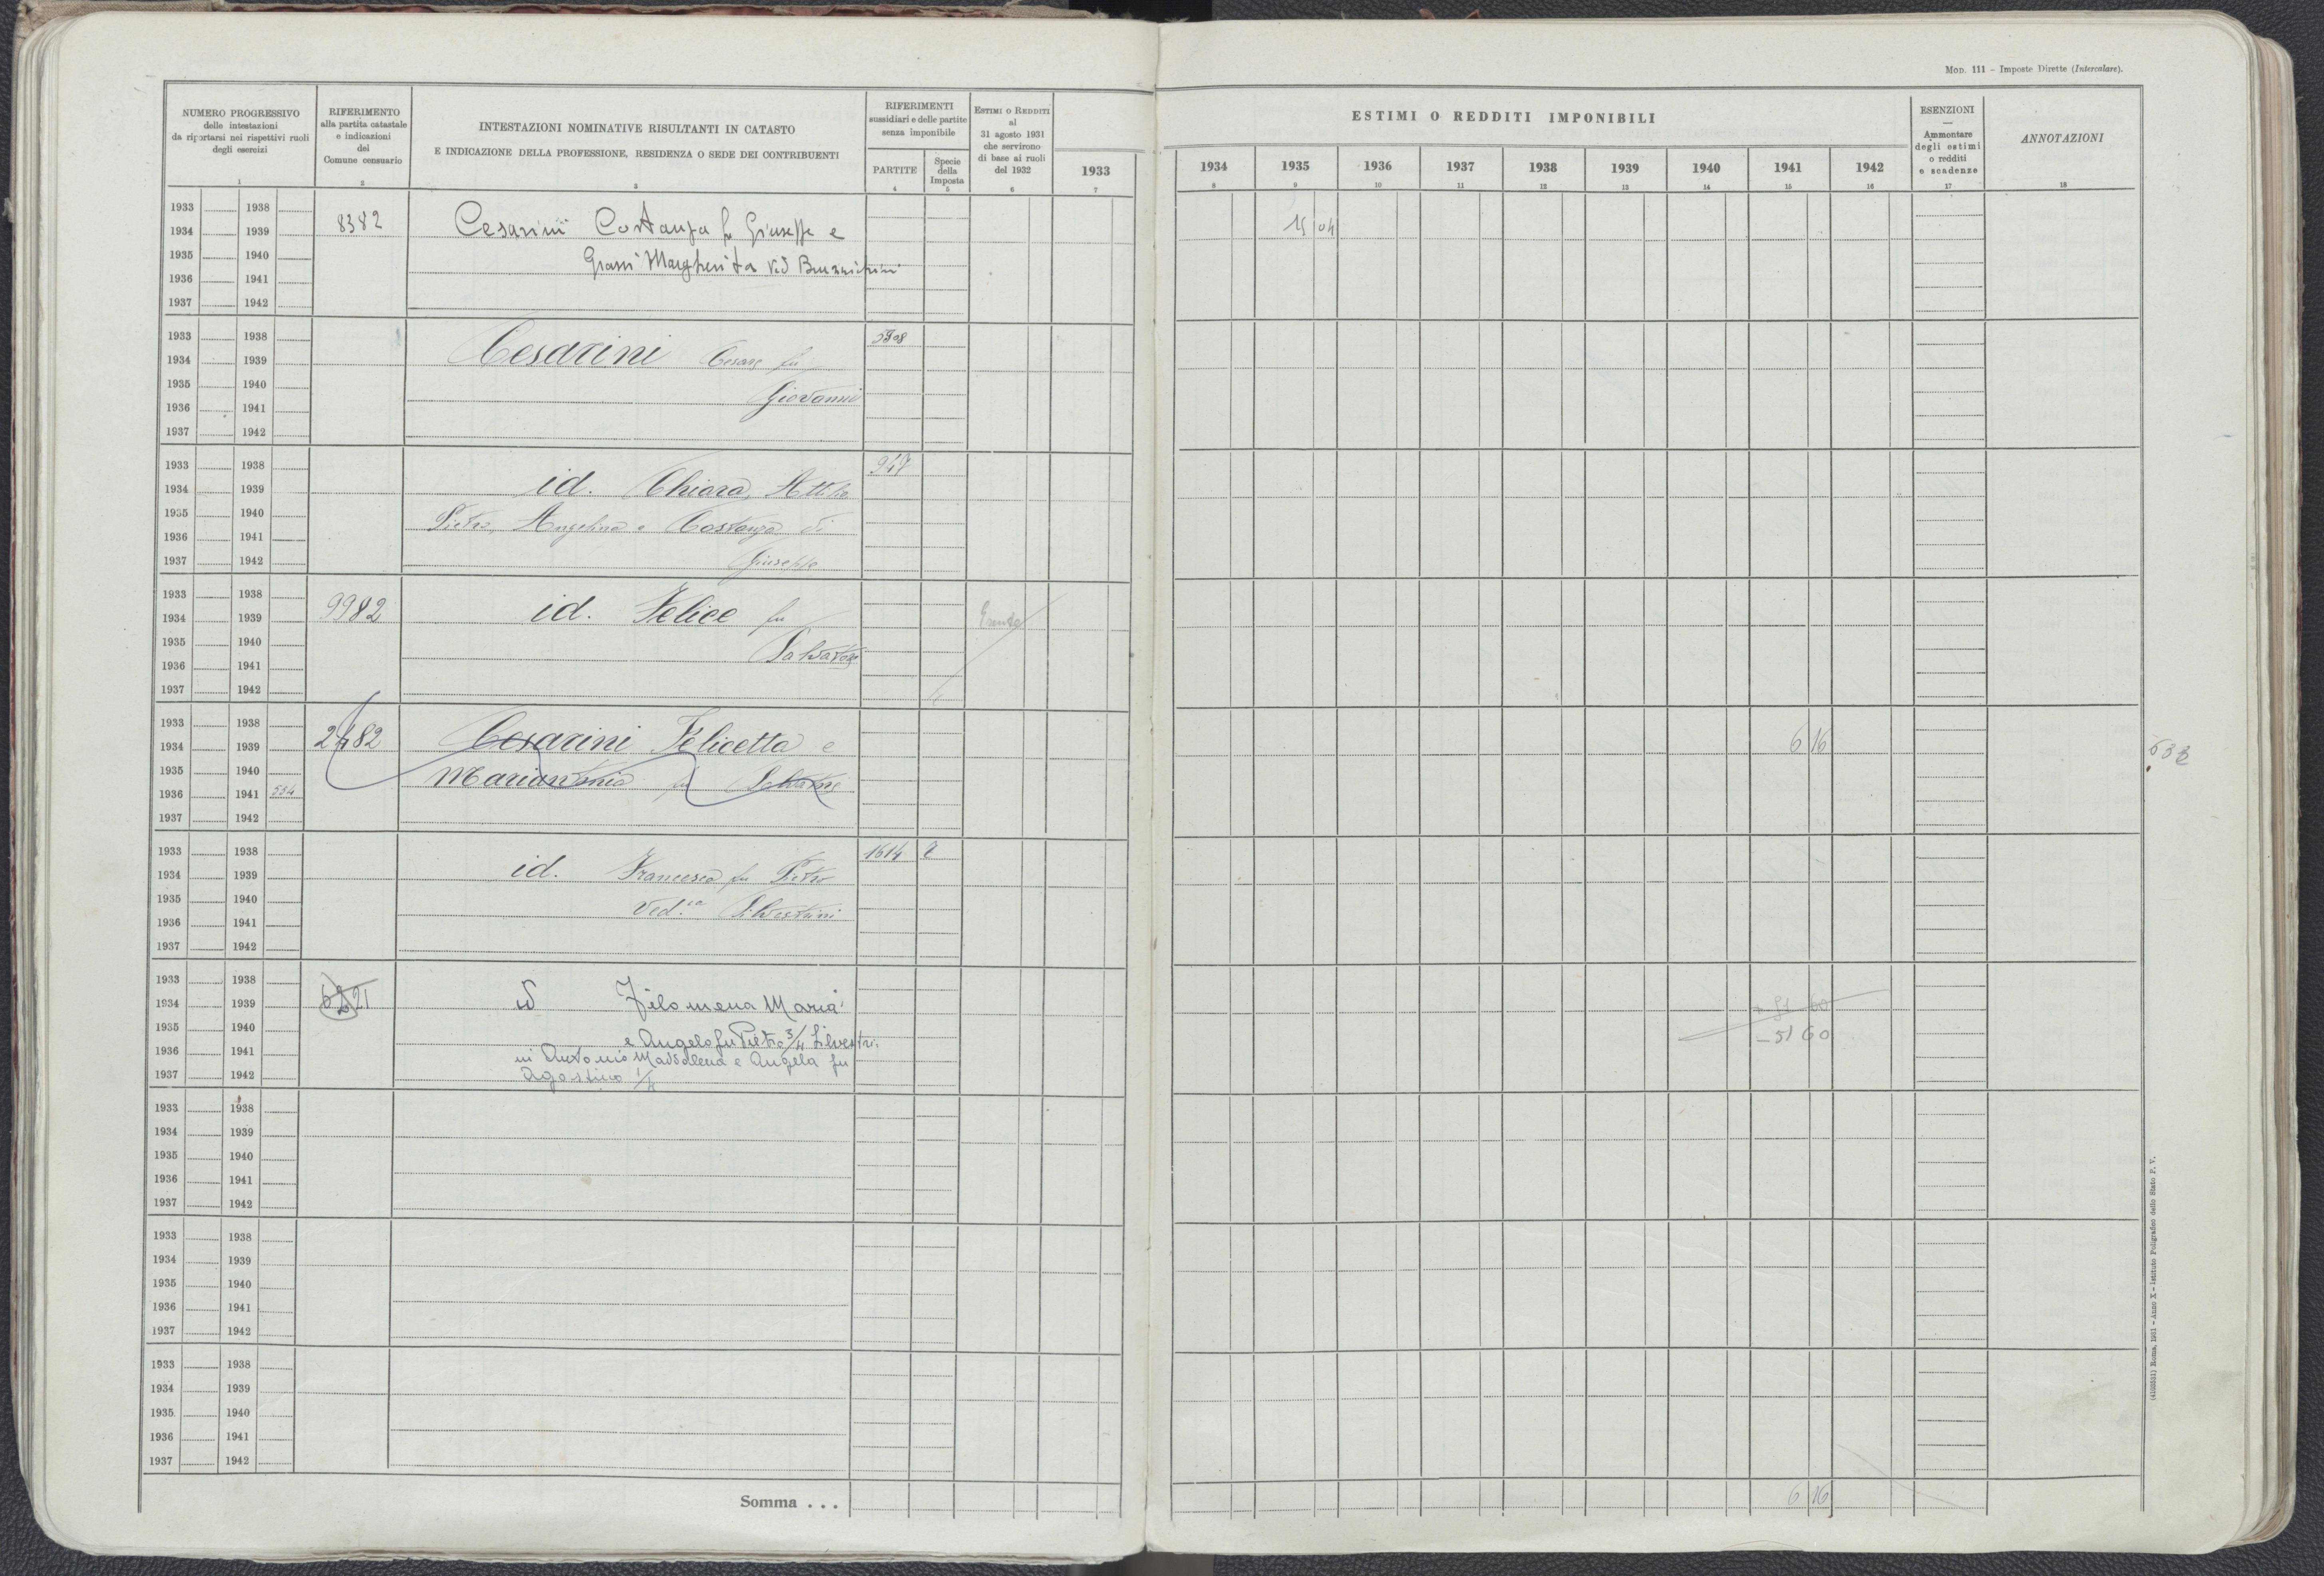 Mod. 111 – Imposte Dirette (Intercalare).
NUMERO PROGRESSIVO
delle intestazioni
da riportarsi nei rispettivi ruoli
degli esercizi
1
RIFERIMENTO
alla partita catastale
e indicazioni
del
Comune censuario
2
INTESTAZIONI NOMINATIVE RISULTANTI IN CATASTO
E INDICAZIONE DELLA PROFESSIONE, RESIDENZA O SEDE DEI CONTRIBUENTI
3
RIFERIMENTI
sussidiari e delle partite
senza imponibile
PARTITE
4
Specie
della
Imposta
5
Estimi o Redditi
al
31 agosto 1931
che servirono
di base ai ruoli
del 1932
6
1933
7
ESTIMI O REDDITI IMPONIBILI
1934 1935 1936 1937 1938 1939 1940 1941 1942
8 9 10 11 12 13 14 15 16
ESENZIONI
—
Ammontare
degli estimi
o redditi
e scadenze
17
ANNOTAZIONI
18
1933 1938
1934 1939 8382 Cesarini Costanza fu Giuseppe e 15 04
1935 1940 Grassi Margherita Ved
1936 1941
1937 1942
1933 1938
1934 1939 Cesarini Cesare fu
1935 1940 Giovanni
1936 1941
1937 1942
1933 1938 947
1934 1939 id. Chiara, Attilio
1935 1940 Pietro, Angelina e Costanza di
1936 1941
1937 1942 Giuseppe
1933 1938
1934 1939 9982 id. Felice fu Esente
1935 1940 Salvatore
1936 1941
1937 1942
1933 1938
1934 1939 2482 Cesarini Felicetta e 6 16
1935 1940 Mariantonia fu Salvatore
1936 1941 554
1937 1942
1933 1938 1614 2
1934 1939 id. Francesca fu Pietro
1935 1940 Ved.va Silvestrini
1936 1941
1937 1942
1933 1938
1934 1939 6221 id Filomena Maria + 51 60
1935 1940 e Angelo fu Pietro 3/4 Silvestri – 51 60
1936 1941 ni Antonio Maddalena e Angela fu
1937 1942 Agostino 1/4
1933 1938
1934 1939
1935 1940
1936 1941
1937 1942
1933 1938
1934 1939
1935 1940
1936 1941
1937 1942
1933 1938
1934 1939
1935 1940
1936 1941
1937 1942
Somma . . . 6 16
(4103531) Roma, 1931 - Anno X - Istituto Poligrafico dello Stato P. V.